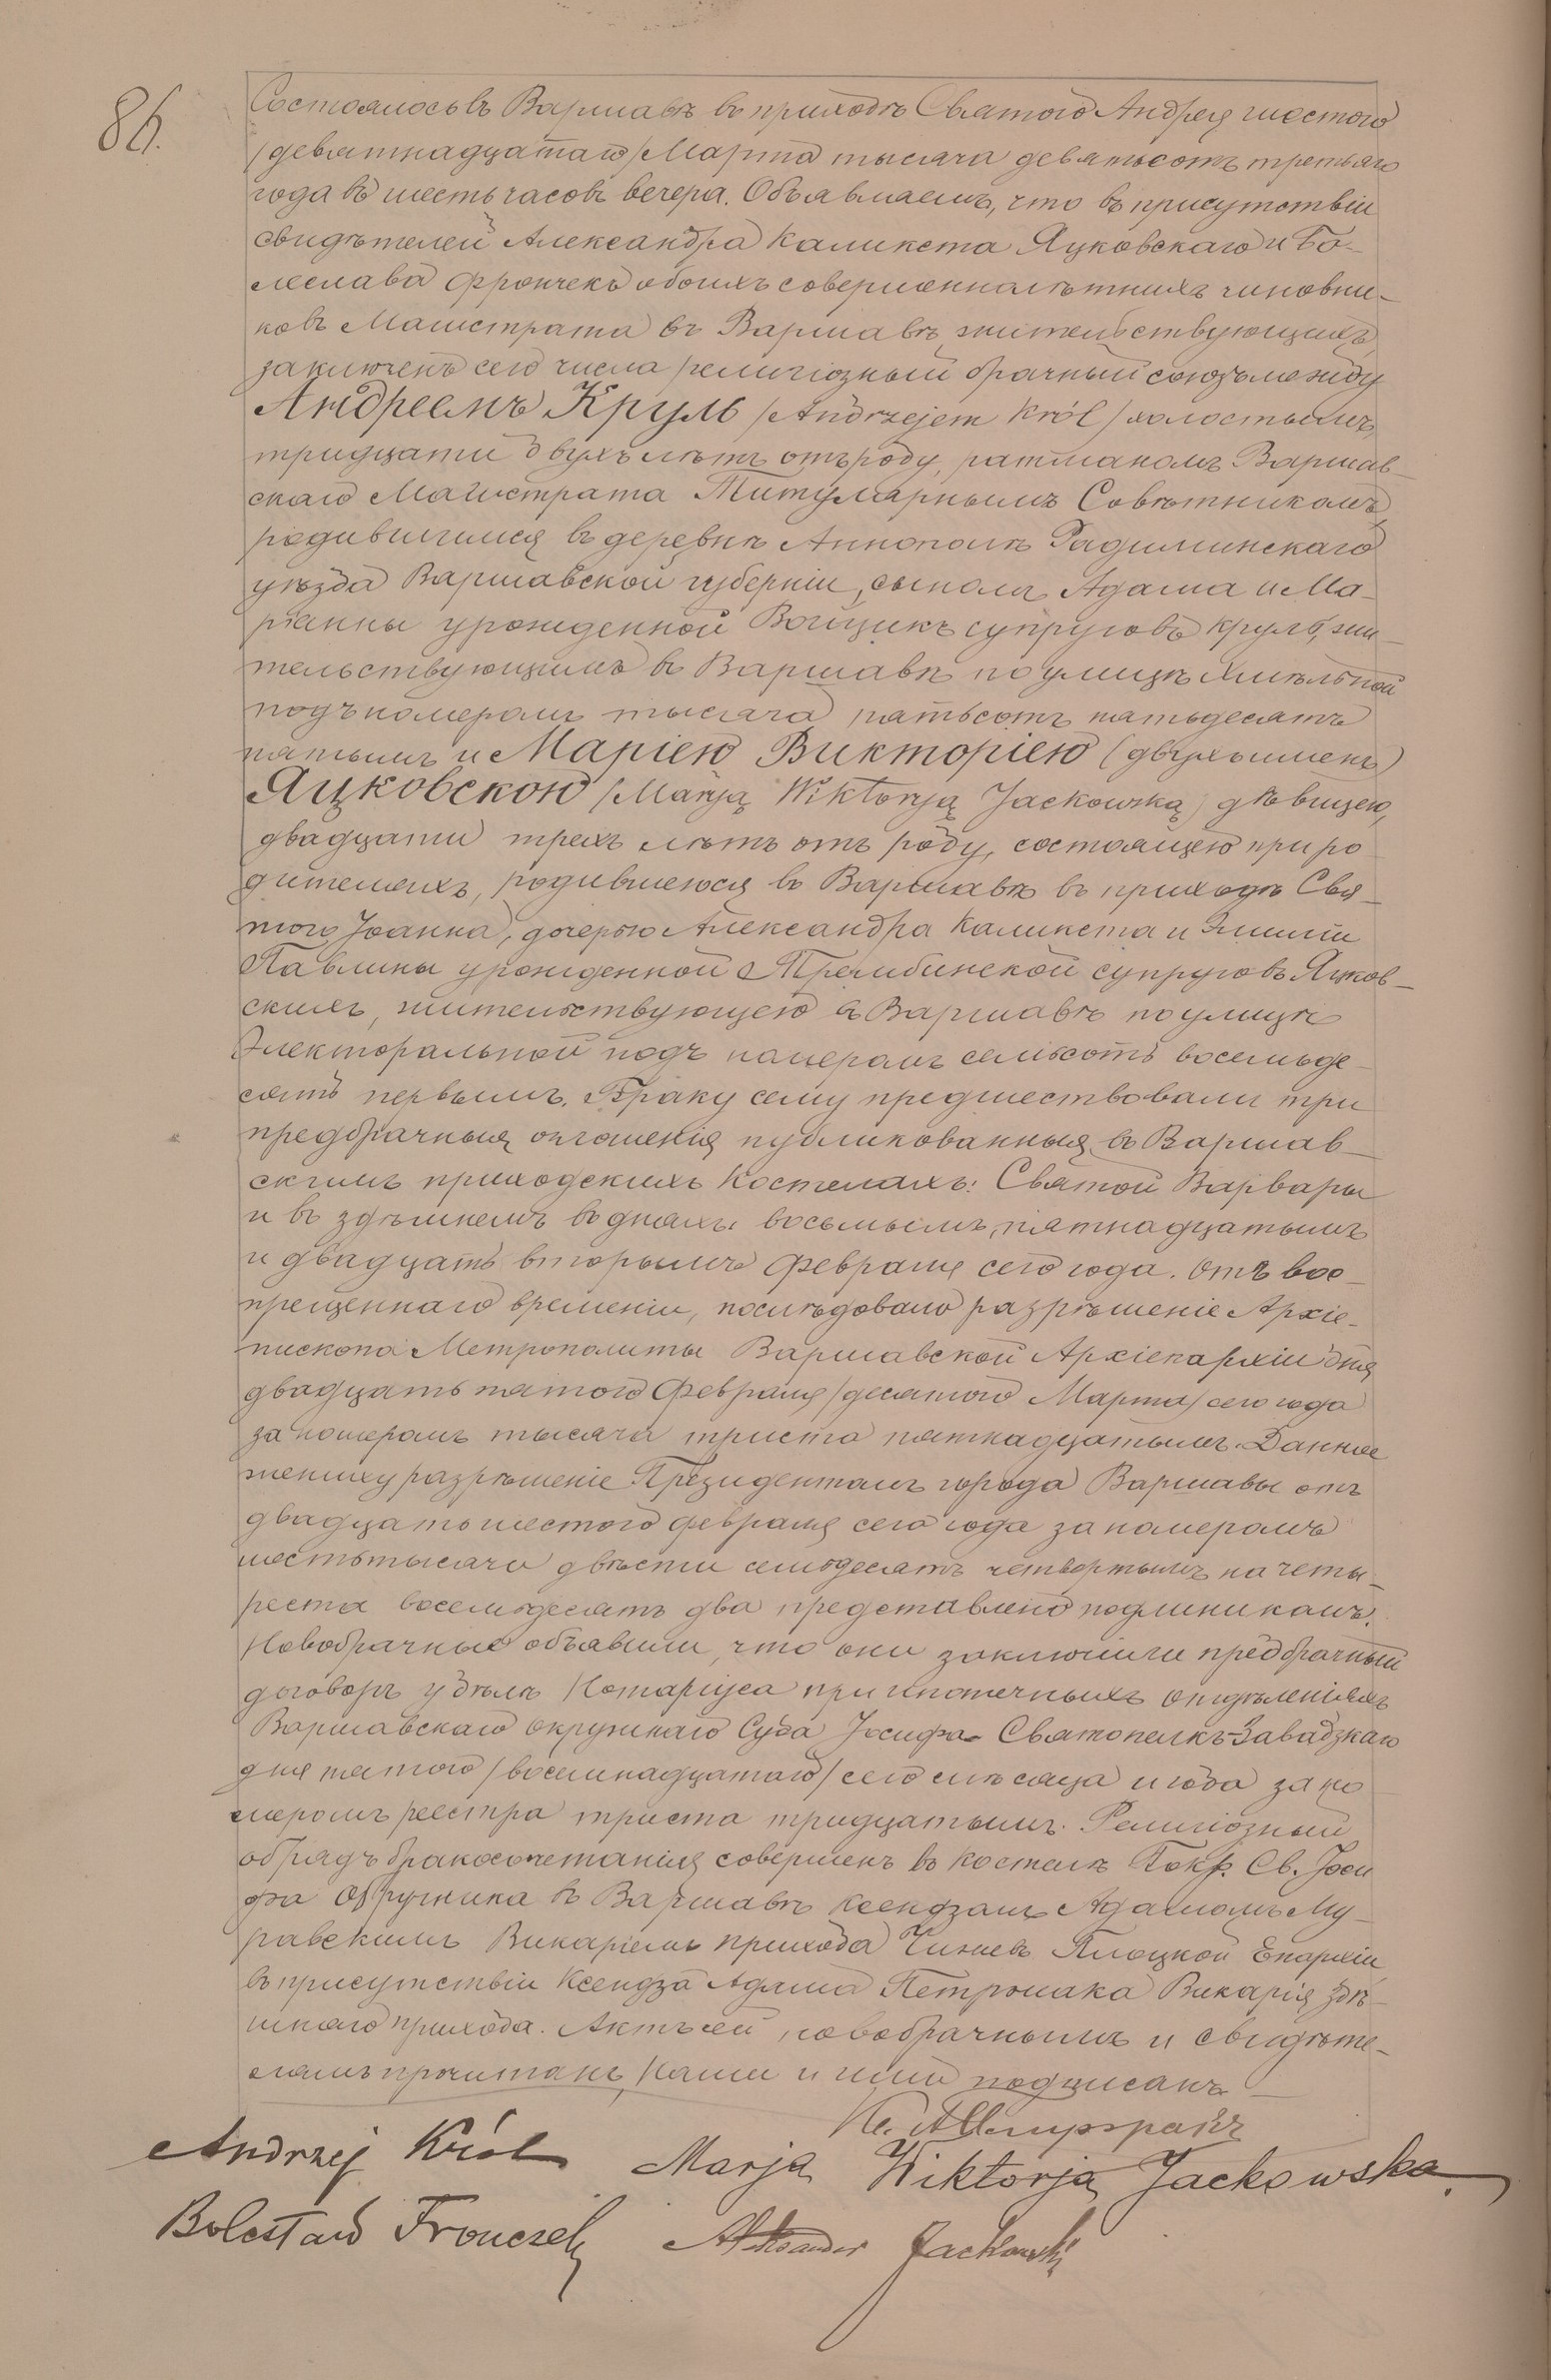 86.
Состоялось въ Варшавѣ въ приходѣ Святого Андрея шестого
/девятнадцатаго/ Марта тысяча девятьсотъ третьяго
года въ шесть часовъ вечера. Объявляемъ, что въ присутствіи
свидѣтелей Александра Каликста Яцковскаго и Бо-
леслава Фрончекъ обоихъ совершеннолѣтнихъ чиновни-
ковъ Магистрата въ Варшавѣ жительствующихъ,
заключенъ сего числа религіозный брачный союзъ между
Андреемъ Круль /Andrzejem Król/ холостымъ,
тридцати двухъ лѣтъ отъ роду, ратманомъ Варшав-
скаго Магистрата Титулярнымъ Совѣтникомъ,
родившимся въ деревнѣ Аннополь Радиминскаго
уѣзда Варшавской губерніи, сыномъ Адама и Ма-
ріанны урожденной Войцикъ супруговъ Круль, жи-
тельствующимъ въ Варшавѣ по улицѣ Хмѣльной
подъ номеромъ тысяча пятьсотъ пятьдесятъ
пятымъ и Маріею Викторіею (двухъ именъ)
Яцковскою /Marją Wiktorją Jackowską) дѣвицею,
двадцати трехъ лѣтъ отъ роду, состоящею при ро
дителяхъ, родившеюся въ Варшавѣ въ приходѣ Свя-
того Іоанна, дочерью Александра Каликста и Эмиліи
Павлины урожденной Трембинской супруговъ Яцков-
скихъ, жительствующею въ Варшавѣ по улицѣ
Электоральной подъ номеромъ семьсотъ восемьде
сятъ первымъ. Браку сему предшествовали три
предбрачныя оглашенія публикованныя въ Варшав-
скихъ приходскихъ костелахъ: Святой Варвары
и въ здѣшнемъ въ дняхъ: восьмымъ, пятнадцатымъ
и двадцать вторымъ Февраля сего года. Отъ вос-
прещеннаго времени, послѣдовало разрѣшеніе Архіе-
пископа Метрополиты Варшавской Архіепархіи дня
двадцать пятого Февраля /десятого Марта/ сего года
за номеромъ тысяча триста пятнадцатымъ. Данное
жениху разрѣшеніе Президентомъ города Варшавы отъ
двадцать шестого февраля сего года за номеромъ
шесть тысячи двѣсти семьдесятъ четвертымъ на четы-
реста восемьдесятъ два представлено подлинникомъ.
Новобрачные объявили, что они заключили предбрачный
договоръ у дѣлъ Нотаріуса при ипотечныхъ отдѣленіяхъ
Варшавскаго Окружнаго Суда Іосифа Святопелкъ-Завадзкаго
дня пятого /восемнадцатаго/ сего мѣсяца и года за но
меромъ реестра триста тридцатымъ. Религіозный
обрядъ бракосочетанія совершенъ въ костелѣ Покр. Св. Іоси
фа Обручника въ Варшавѣ Ксендзомъ Адамомъ Му-
равскимъ Викаріемъ прихода Чижевъ Плоцкой Епархіи
въ присутствіи Ксендза Адама Петрошака Викарія здѣ-
шняго прихода. Актъ сей новобрачнымъ и свидѣте-
лямъ прочитанъ, Нами и ими подписанъ
Andrzej Król Marja Wiktorja Jackowska
Bolesław Fronczek Aleksander Jackowski